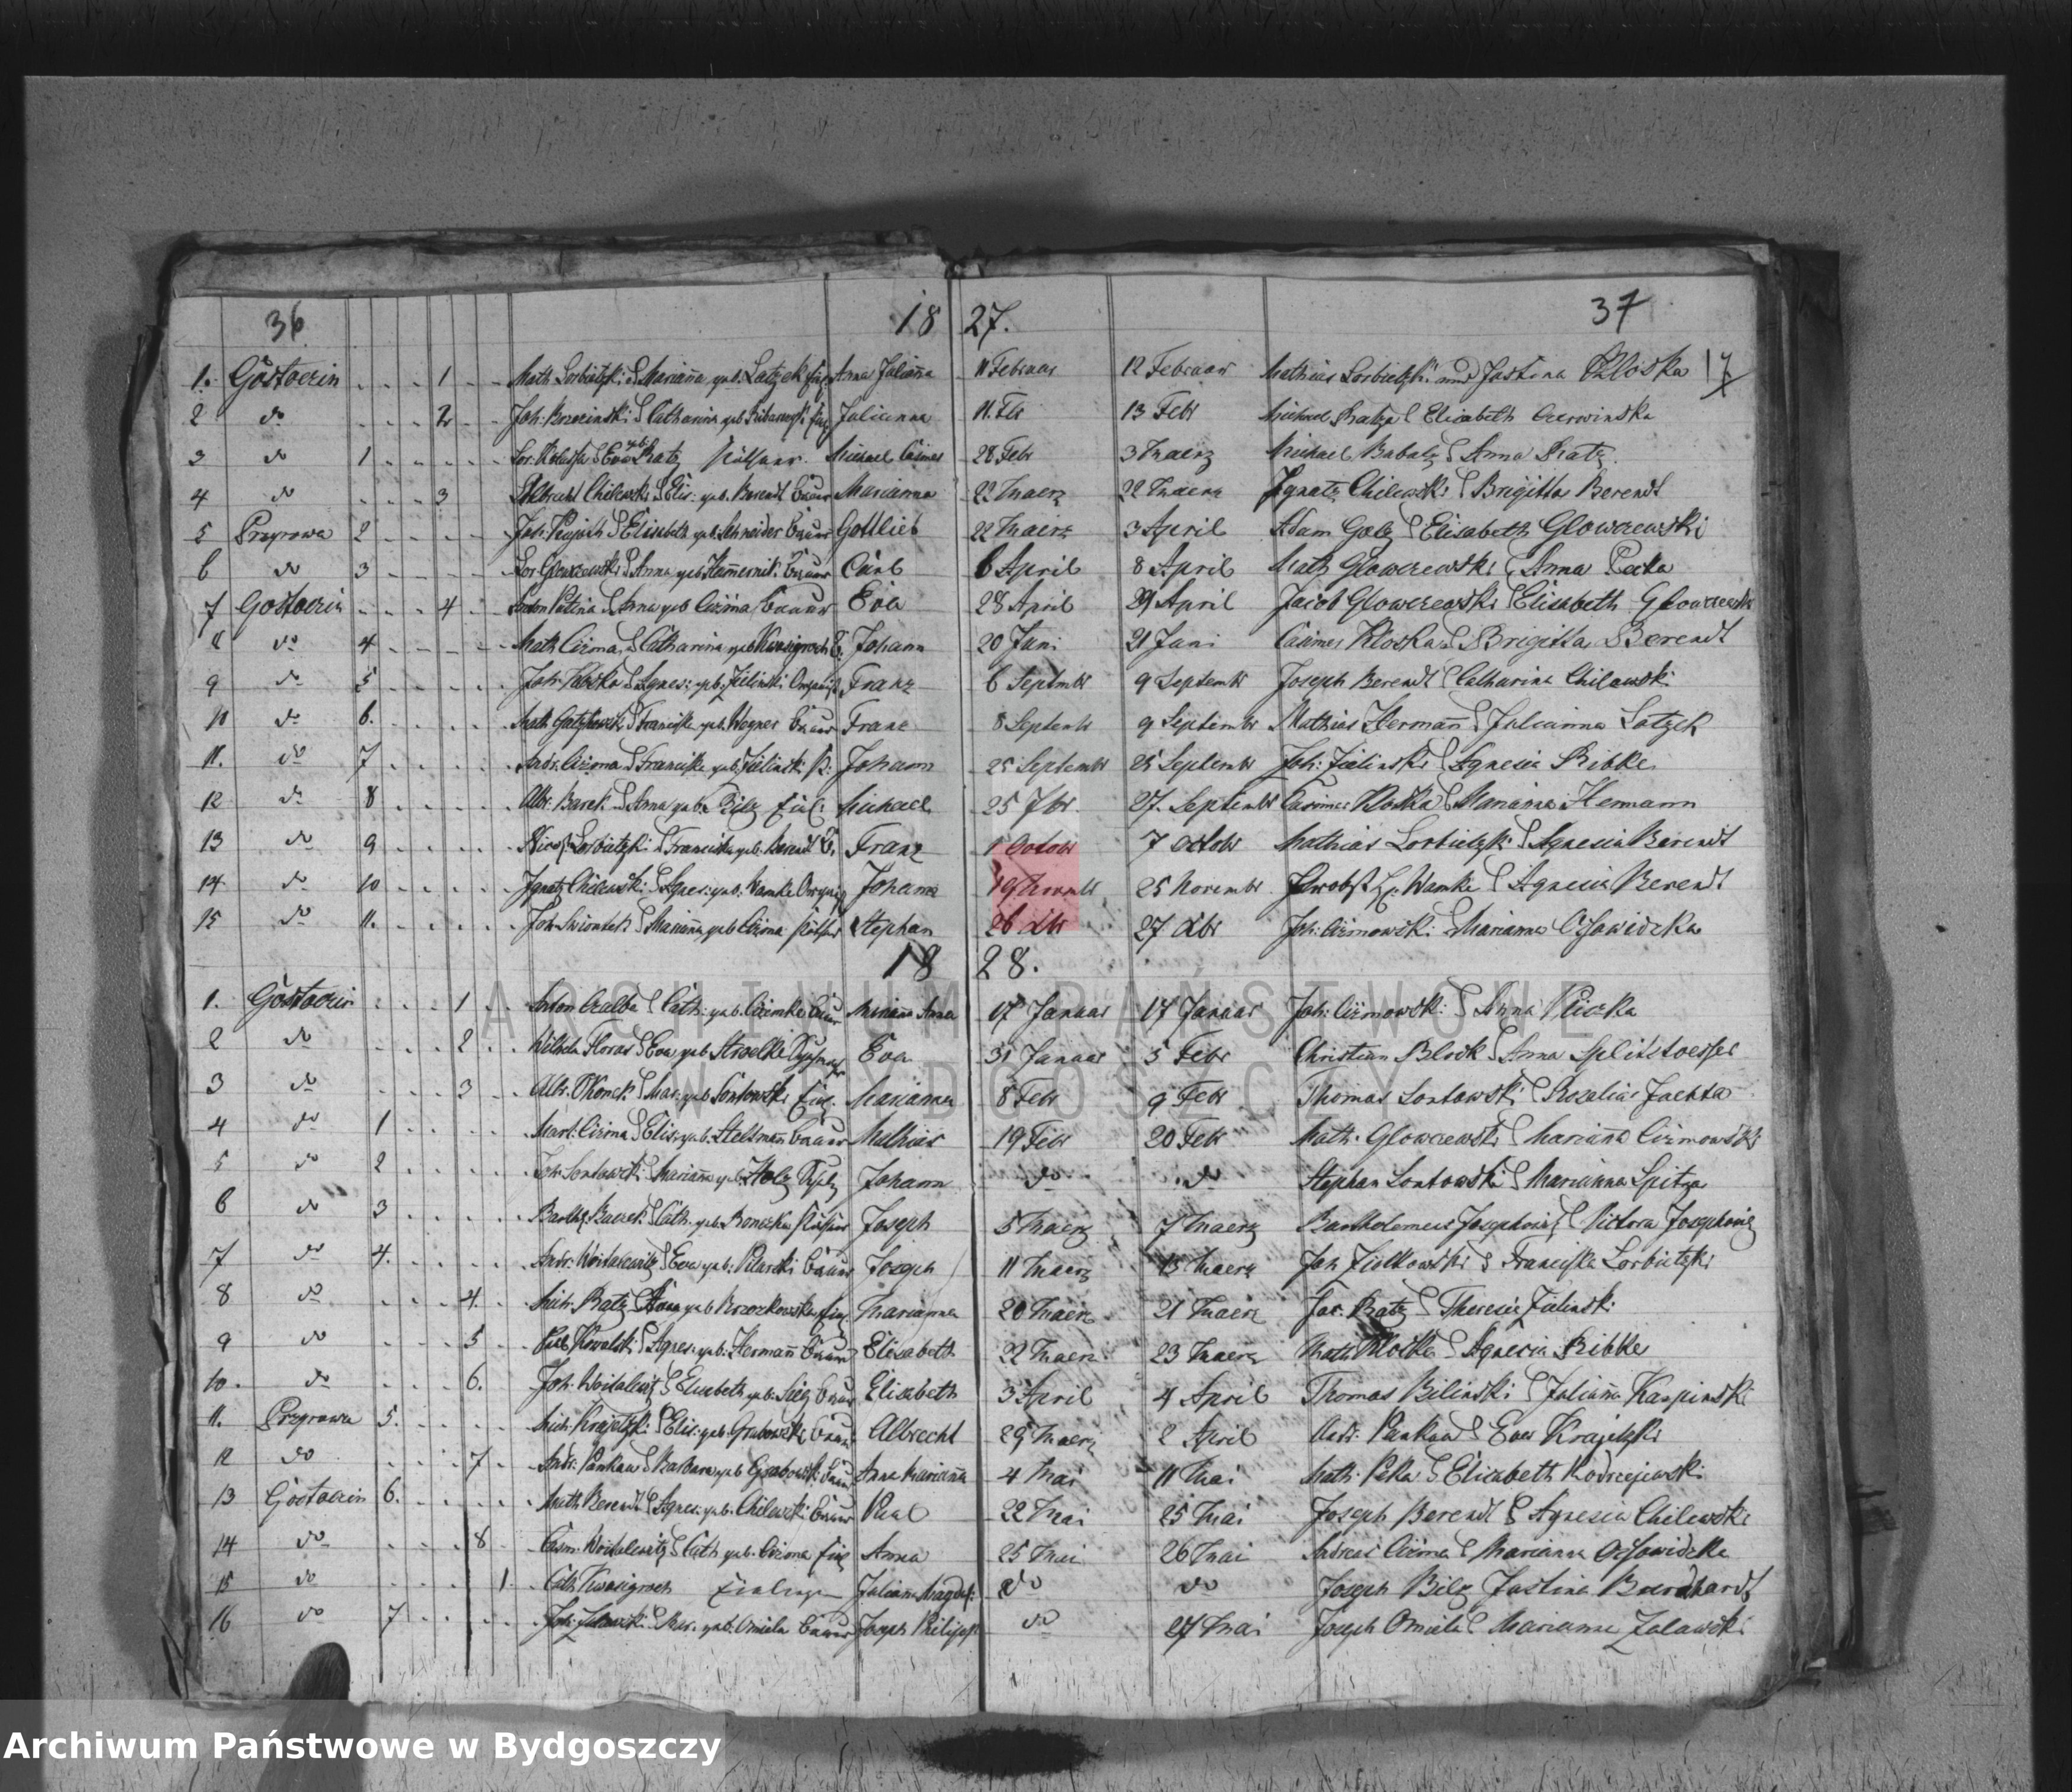 36
18 27.
37
1. Gostoczin 1 Math. Lorbietzki & Mariaña geb. Latzek Anna Juliaña 11 Februar 12 Februar Mathias Lorbietzki und Justina Kloska 17
2 do 2 Joh. Brzezinski & Catharina geb. Julianna 11. Feb 13 Febr Michael Ratz & Elisabeth Czerwinska
3 do 1 Eva geb. Ratz Michael Casimer 28 Febr 3 Maerz Michael Babatz & Anna Ratz
4 do 3 Albrecht Chilewski & Elis: geb. Berendt Bauer Marianna 22 Maerz 22 Maerz Ignatz Chilewski & Brigitta Berendt
5 Przyrowa 2 Joh. & Elisabeth geb. Schneider Bauer Gottlieb 22 Maerz 3 April Adam Golz & Elisabeth Glowczewski
6 do 3 Glowczewski & Anna geb. Bauer Carl 6 April 8 April Math Glowczewski & Anna Pecka
7 Gostoczin 4 Anton & Anna geb. Cizma Bauer Eva 28 April 29 April Jacob Glowczewski & Elisabeth Glowczewski
8 do 4 Math Cizma & Catharina geb. Kwasigroch B. Johann 20 Juni 21 Juni Casimer Kloska & Brigitta Berendt
9 do 5 Joh. Kloska & Agnes: geb. Zielinski Franz 6 Septembr 9 Septembr Joseph Berendt & Catharina Chilewski
10 do 6. Math & Franciska geb. Wegner Bauer Franz 8 Septembr 9 Septembr Mathias Hermañ & Julianna Latzek
11. do 7 Andr. Cizma & Franciska geb. Zielinski B: Johann 25 Septembr 25 Septembr Joh: Zielinski & Agnesia Ribke
12 do 8 Alb. & Anna geb. Bilz Michael 25 7br. 27. Septembr Casimer Kloska & Mariana Hermann
13 do 9 Lorbietzki & Franciska geb. Berendt B. Franz 1 Octobr 7 Octobr Mathias Lorbietzki & Agnesia Berendt
14 do 10 Ignatz Chilewski & Agnes: geb. Wamke Johann 19 Novembr 25 Novembr Wamke & Agnesia Berendt
15 do 11. Joh. Swiontek & Mariaña geb. Cizma Stephan 26 Xbr 27 Xbr Joh: Cizmowski & Marianna Ossowidzka
18 28.
1. Gostoczin 1 Anton & Cath: geb. Bauer Mariaña Anna 17 Januar 17 Januar Joh: Cizmowski & Anna
2 do 2 & Eva geb. Eva 31 Januar 5 Febr Christian Block & Anna Splittstoesser
3 do 3 Alb. & Mar: geb. Lontowski Marianna 8 Febr 9 Febr Thomas Lontowski & Rozalia Jachta
4 do 1 Mart. Cizma & Elis: geb. Steltmañ Bauer Mathias 19 Febr 20 Febr Math: Glowczewski & Mariaña Cizmowski
5 do 2 Joh. Lontowski & Mariaña geb. Stolz Johann do do Stephan Lontowski & Marianna Spitza
6 do 3 & Cath. geb. Joseph 5 Maerz 7 Maerz Bartholomeus Josephowitz & Victora Josephowitz
7 do 4. Andr. Woitalewitz & Eva geb: Pilarski Bauer Joseph 11 Maerz 15 Maerz Joh Ziolkowski & Franciska Lorbietzki
8 do 4. Mich. Ratz & geb. Marianna 20 Maerz 21 Maerz Jac. Ratz & Theresia Zielinski
9 do 5 Kowalski & Agnes: geb: Hermañ Bauer Elisabeth 22 Maerz 23 Maerz Math & Agnesia Ribke
10. do 6. Joh. Woitalewitz & Elisabeth geb: Bauer Elisabeth 3 April 4 April Thomas Bilinski & Juliaña Kaspinski
11. Przyrowa 5. Mich. Krajetzki & Elis: geb. Grabowski Bauer Albrecht 29 Maerz 2 April Andr: Pankau & Eva Krajetzki
12 do 7 Andr. Pankau & Barbara geb. Grabowski Bauer Anna Mariaña 4 Mai 11 Mai Math: Peka & Elisabeth Kodrzejewski
13 Gostoczin 6. Math Berendt & Agnes: geb. Chilewski Bauer Paul 22 Mai 25 Mai Joseph Berendt & Agnesia Chilewski
14 do 8 Casm. Woitalewitz & Cath geb. Cizma Anna 25 Mai 26 Mai Andreas Cizma & Marianna Ossowidzka
15 do 1 Cath Kwasigroch Juliana Magdal: do do Joseph Bilz Justina Burchardt
16 do 7 Joh. Zalawski & Mar. geb. Omiela Bauer Joseph Philipp do 27 Mai Joseph Omiela & Marianna Zalawski
ARCHIWUM PAŃSTWOWE
W BYDGOSZCZY
Archiwum Państwowe w Bydgoszczy